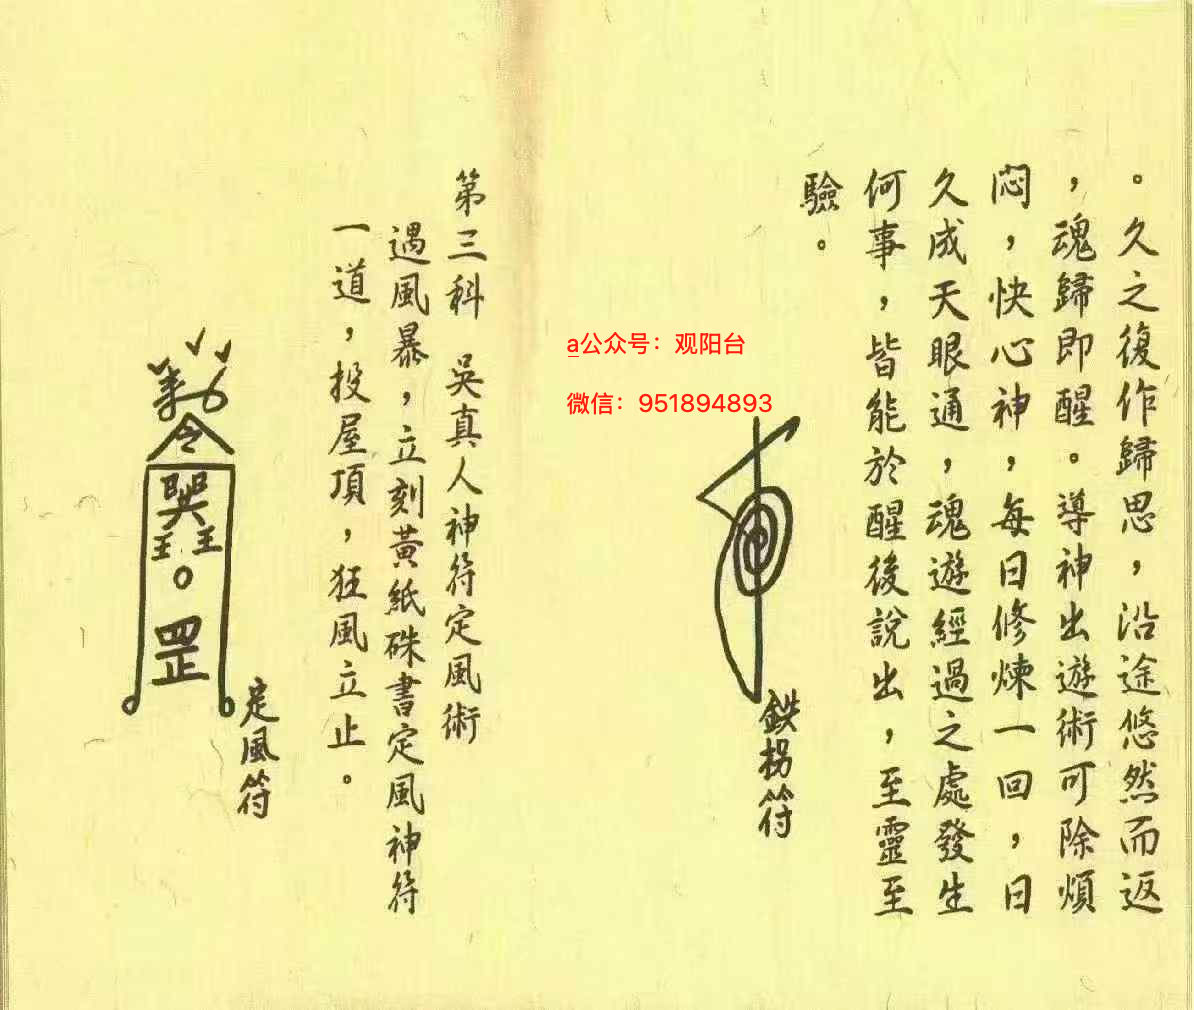 。久之復作歸思，沿途悠然而返
，魂歸即醒。導神出遊術可除煩
悶，快心神，每日修煉一回，日
久成天眼通，魂遊經過之處發生
何事，皆能於醒後說出，至靈至
驗。
鉄拐符
a公众号：观阳台
微信：951894893
第三科 吳真人神符定風術
遇風暴，立刻黃紙硃書定風神符
一道，投屋頂，狂風立止。
令
王 王
罡
定風符